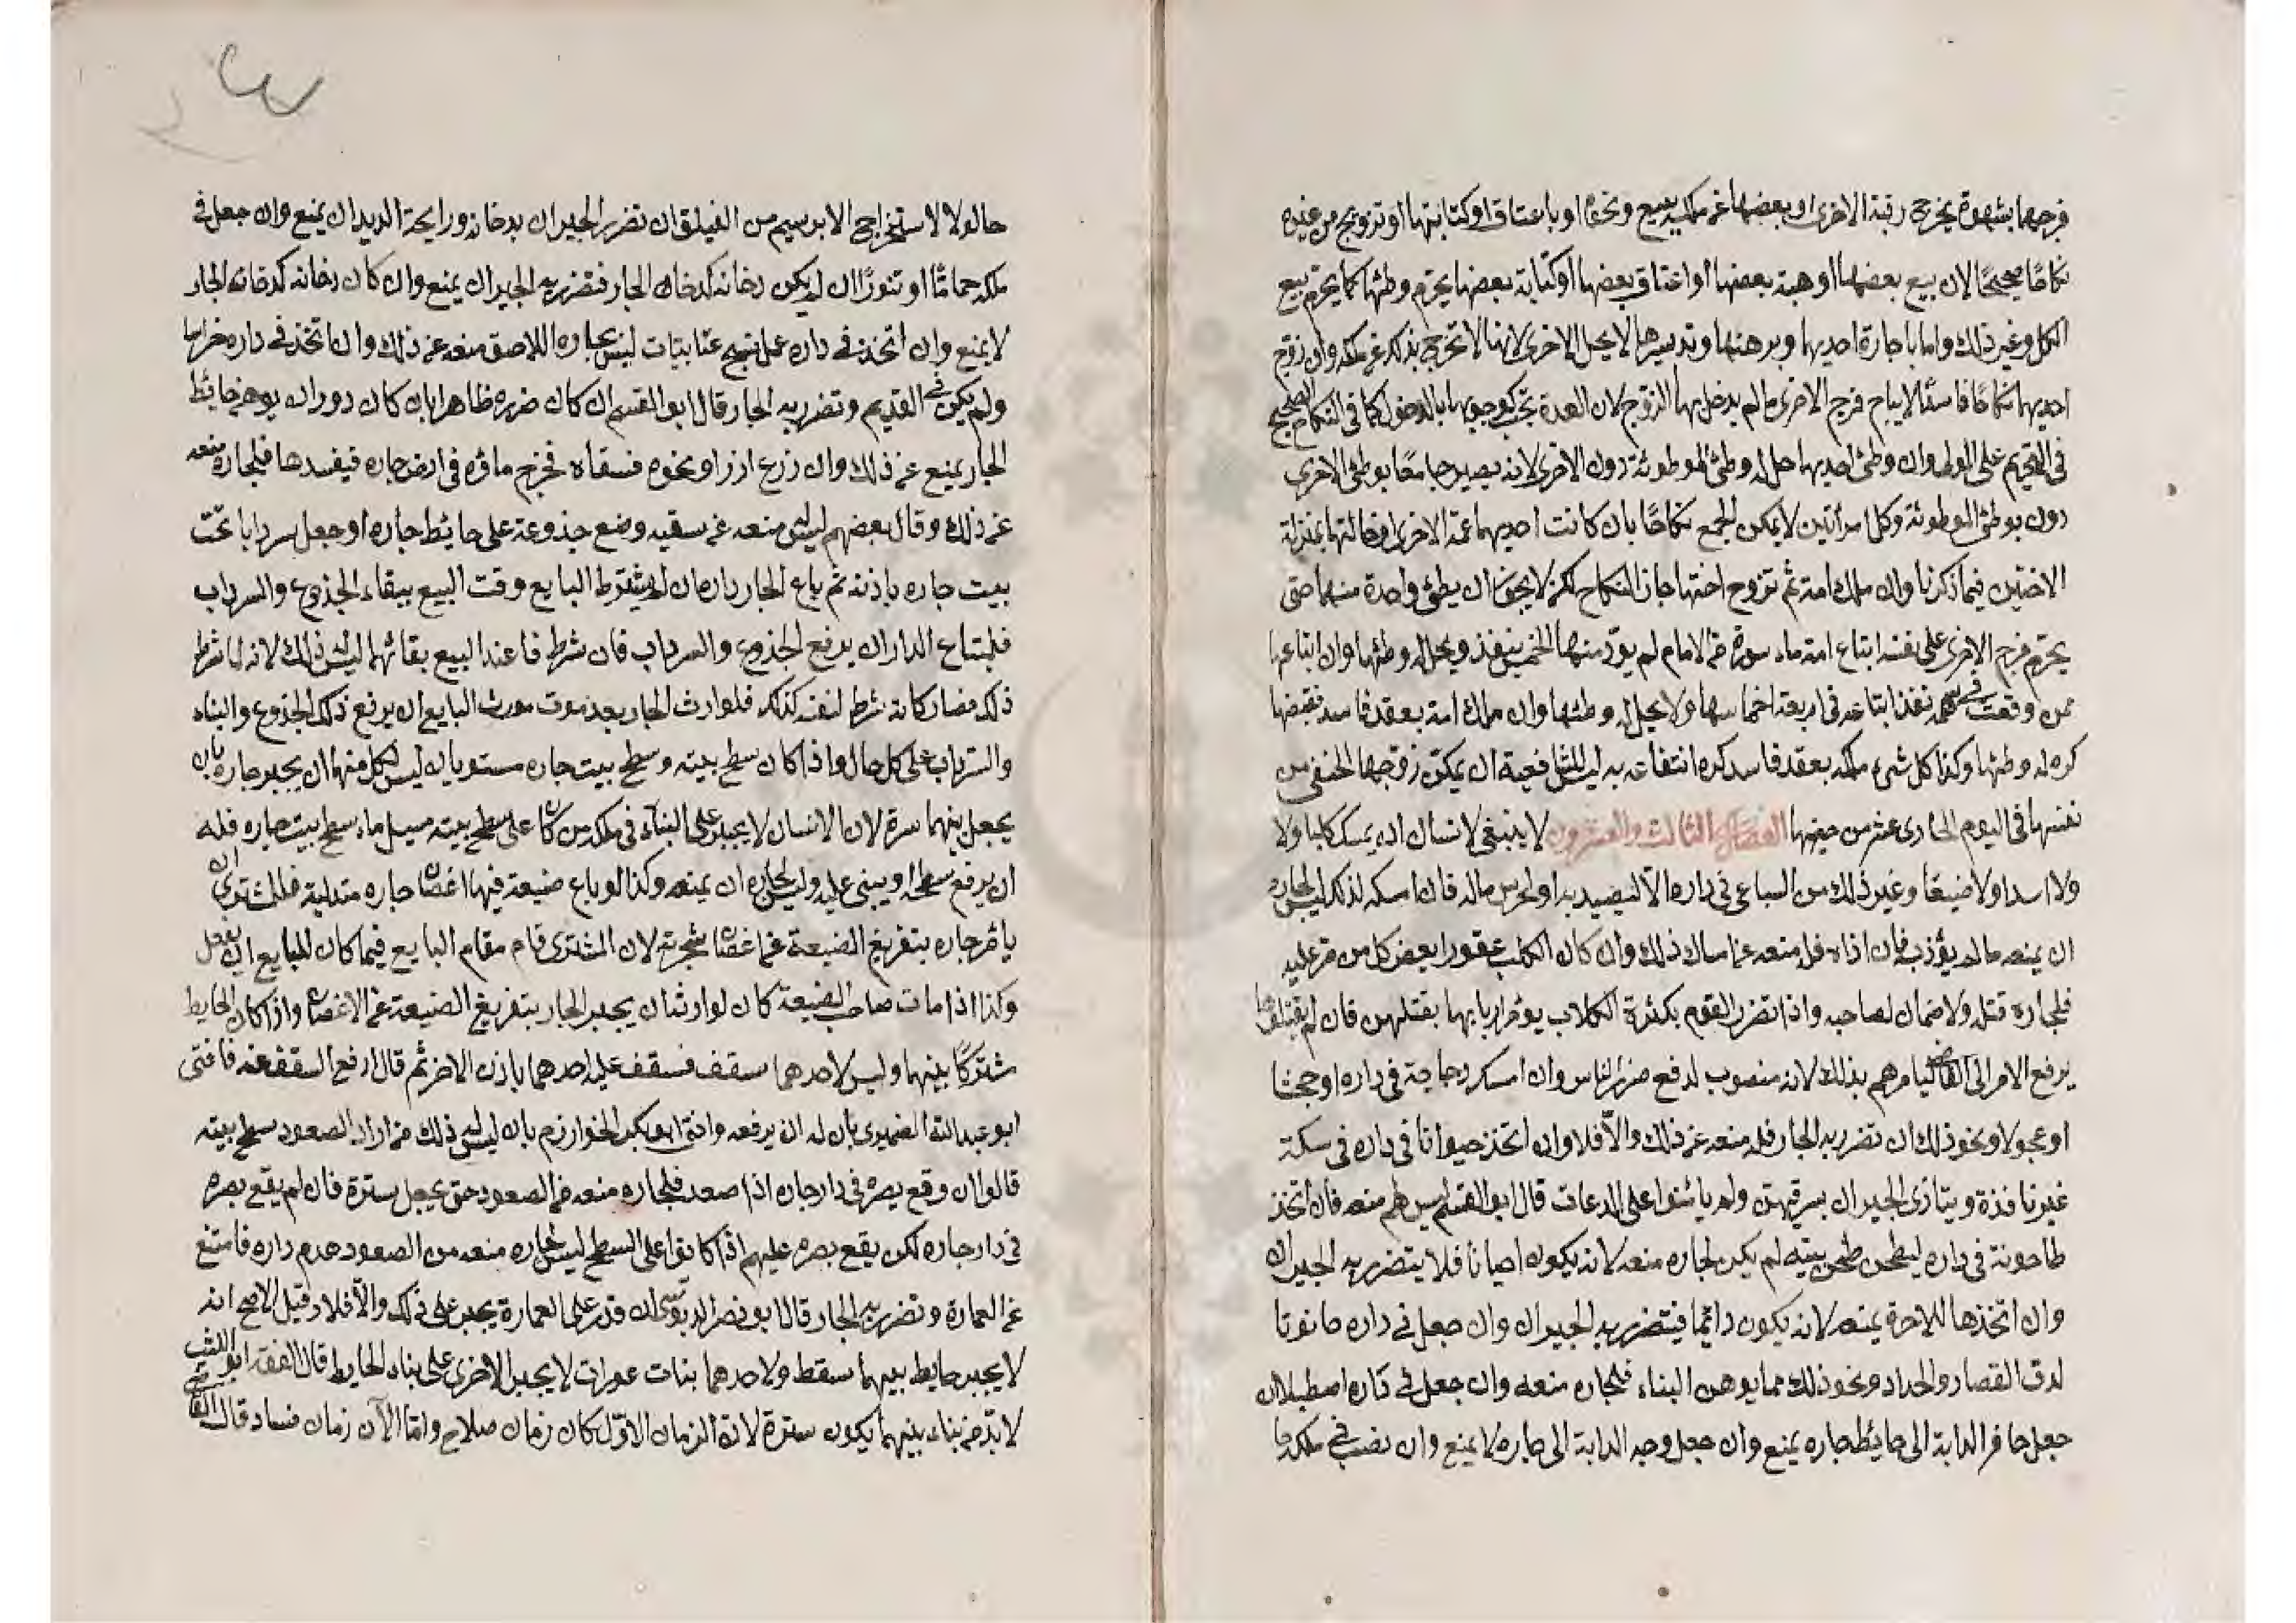 فرجها بشهوة يخرج رقبة الاخرى او بعضها عن ملكه ببيع ونحوه او باعتاق او كتابتها او تزويج من غيره
نكاحًا صحيحًا لان بيع بعضها او هبة بعضها او اعتاق بعضها او كتابة بعضها يحرم وطئها كما يحرم بيع
الكل وغير ذلك واما باجارة احديهما وبرهنها وتدبيرها لا يحل الاخرى لانها لا تخرج بذلك عن ملكه وان زوج
احديهما نكاحًا فاسدًا لا يباح فرج الاخرى ما لم يدخل بها الزوج لان العدة تجب كوجوبها بالدخول كما في النكاح الصحيح
في التحريم على الوطى وان وطئ احديهما حل له وطئ الموطوئة دون الاخرى لانه يصير جامعًا بوطئ الاخرى
دون بوطئ الموطوئة وكل امرأتين لا يمكن الجمع نكاحًا بان كانت احديهما عمة الاخرى او خالتها بمنزلة
الاختين فيما ذكرنا وان ملك امة ثم تزوج اختها جاز النكاح لكن لا يجوز ان يطئ واحدة منهما حتى
يحرم فرج الاخرى على نفسه ابتاع امة ماسورة من الامام لم يؤد منها الخمس ينفذ ويحل له وطئها وان ابتاعها
ممن وقعت في سهمه نفذ ابتاعه في اربعة اخماسها ولا يحل له وطئها وان ملك امة بعقد فاسد فقبضها
كره له وطئها وكذا كل شيء ملكه بعقد فاسد كره انتفاعه به ليس للشافعية ان يمكن زوجها الحنفي من
نفسها في اليوم الحادى عشر من حيضها الفصل الثالث والعشرون لا ينبغي لانسان ان يمسك كلبا ولا
ولا اسدا ولا ضبعًا وغير ذلك من السباع في داره الا ليصيد به او لحرس ماله فان امسكه لذلك ليس لجاره
ان يمنعه ما لم يؤذ به فان اذاه فله منعه عن امساك ذلك وان كان الكلب عقورا يعض كل من مر عليه
فلجاره قتله ولا ضمان لصاحبه واذا تضرر القوم بكثرة الكلاب يؤمر اربابها بقتلهن فان لم يقتلوها
يرفع الامر الى القاضي ليامرهم بذلك لانه منصوب لدفع ضرر الناس وان امسك دجاجة في داره او جحشا
او عجولا ونحو ذلك ان تضرر به الجار فله منعه عن ذلك والا فلا وان اتخذ حيوانا في داره في سكة
غير نافذة ويتاذى الجيران بسرقيهن ولم يأمنوا على الدعات قال ابو القسم ليس لهم منعه فان اتخذ
طاحونة في داره ليطحن طحن بيته لم يكن لجاره منعه لانه يكون احيانا فلا يتضرر به الجيران
وان اتخذها للاجرة يمنعه لانه يكون دائما فيتضرر به الجيران وان جعل في داره حانوتا
لدق القصار والحداد ونحو ذلك مما يوهن البناء فلجاره منعه وان جعل في داره اصطبلان
جعل حافر الدابة الى حائط جاره يمنع وان جعل وجه الدابة الى جاره لا يمنع وان نصب في ملكه
حالولا لاستخراج الابريسم من الفيلق ان تضرر الجيران بدخانه ورايحة الديدان يمنع وان جعل في
ملكه حمامًا او تنورًا ان لم يكن دخانه كدخان الجار فتضرر به الجيران يمنع وان كان دخانه كدخان الجار
لا يمنع وان اتخذ في داره عمل نسج عتابيات ليس لجاره اللاصق منعه عن ذلك وان اتخذ في داره خراسا
ولم يكن في القديم وتضرر به الجار قال ابو القسم ان كان ضرره ظاهرا بان كان دوران يوهن حائط
الجار يمنع عن ذلك وان زرع ارزا ونحوه فسقاه فخرج ماؤه في ارض جاره فيفسدها فلجاره منعه
عن ذلك وقال بعضهم ليس منعه عن سقيه وضع جذوعه على حائط جاره او جعل سردابا تحت
بيت جاره باذنه ثم باع الجار داره ان لم يشترط البايع وقت البيع ببقاء الجذوع والسرداب
فلمبتاع الدار ان يرفع الجذوع والسرداب فان شرط فاعند البيع بقائها ليس ذلك لانه لما شرط
ذلك فصار كانه شرط لنفسه كذلك فلوارث الجار بعد موت مورث البايع ان يرفع ذلك الجذوع والبناء
والسرداب على كل حال واذا كان سطح بيته وسطح بيت جاره مستويان ليس لكل منهما ان يجبر جاره بان
يجعل بينهما سترة لان الانسان لا يجبر على البناء في ملكه من كان على سطح بيته مسيل ماء سطح بيت جاره فله
ان يرفع سطحه او يبنى عليه وليس لجاره ان يمنعه وكذا لو باع ضيعة فيها اغصان جاره متدلية فللمشترى ان
يأمر جاره بتفريغ الضيعة عن اغصان شجرته لان المشترى قام مقام البايع فيما كان للبايع ان يفعل
وكذا اذا مات صاحب الضيعة كان لوارثه ان يجبر الجار بتفريغ الضيعة عن الاغصان واذا كان الحايط
مشتركًا بينهما وليس لاحدهما سقف فسقف عليه احدهما باذن الاخر ثم قال ارفع السقف عنه فافتى
ابو عبدالله الضميرى بان له ان يرفعه وافتى ابو بكر الخوارزمى بان ليس له ذلك من اراد الصعود سطح بيته
قالوا ان وقع بصره في دار جاره اذا صعد فلجاره منعه من الصعود حتى يجعل سترة فان لم يقع بصره
في دار جاره لكن يقع بصره عليهم اذا كانوا على السطح ليس لجاره منعه من الصعود هدم داره فامتنع
عن العمارة وتضرر به الجار قال ابو نصر الدبوسي ان قدر على العمارة يجبر على ذلك والا فلا وقيل الاصح انه
لا يجبر حايط بينهما سقط ولاحدهما بنات عورات لا يجبر الاخرى على بناء الحايط قال الفقه ابو الليث
لا بد من بناء بينهما يكون سترة لانه الزمان الاول كان زمان صلاح واما الآن زمان فساد قال القاضي